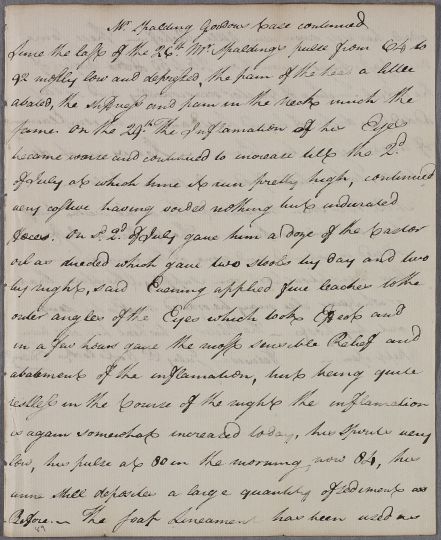 Mr. Spalding Gordons Case continued
Since the last of the 26th. Mr. Spaldings pulse from 64 to
92 mostly low and depressed, the pain of the head a litter
abated, the stiffness and pain in the neck much the
same. On the 29th. The Inflamation of his Eyes
became worse and continued to increase till the 2d.
of July at which time it run pretty high, continued
very costive having voided nothing but indurated
faeces. On 2d. of July gave him a doze of the Castor
oil as directed which gave two stools by day and two
by night, said Evening applied five leaches to the
outer angles of the Eyes which took Efect and
in a few hours gave the most sensible Relief and
abatement of the inflamation, but being quite
restless in the Course of the night the inflamation
is again somewhat increased today, his spirits very
low, his pulse at 80 in the morning, now 84, his
urine still deposites a large quantity of sediment as
Before. The Soap Lineament has been used as